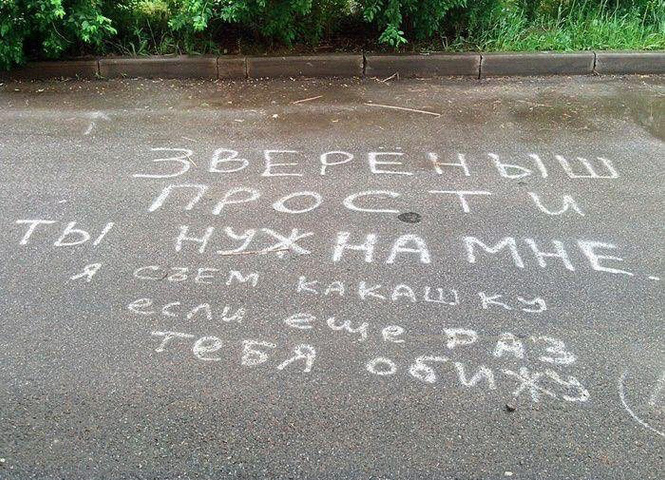 ЗВЕРЁНЫШ
ПРОСТИ
ТЫ НУЖНА МНЕ.
Я СЪЕМ КАКАШКУ
если еще РАЗ
тебя обижу